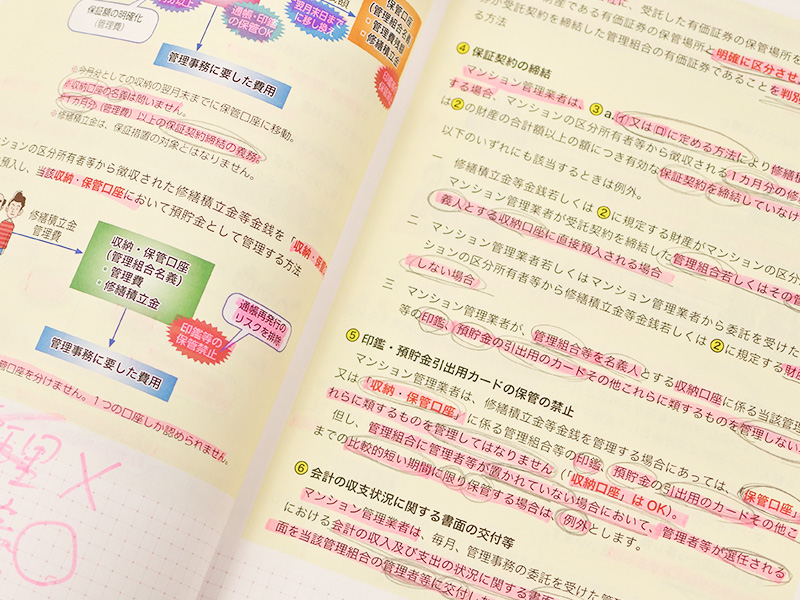 保証額の明確化
(管理費)
通帳・印鑑
の保管OK
翌月末日まで
に移し換え
保管口座
(管理組合名義)
・管理費残額
・修繕積立金
管理事務に要した費用
※今月分としての収納の翌月末までに保管口座に移動。
※収納口座の名義は問いません。
※1カ月分(管理費)以上の保証契約締結の義務。
※修繕積立金は、保証措置の対象とはなりません。
ンションの区分所有者等から徴収された修繕積立金等金銭を「収納・保管
預入し、当該収納・保管口座において預貯金として管理する方法
修繕積立金
管理費
収納・保管口座
(管理組合名義)
・管理費
・修繕積立金
印鑑等の
保管禁止
通帳再発行の
リスクを排除
管理事務に要した費用
口座を分けません。1つの口座しか認められません。
管理 ×
○
に、受託した有価証券の保管場所を
財産である有価証券の保管場所と明確に区分させ
が受託契約を締結した管理組合の有価証券であることを判別
る方法
④ 保証契約の締結
マンション管理業者は、③a.イ又はロに定める方法により修繕積
する場合、マンションの区分所有者等から徴収される1カ月分の修
は②の財産の合計額以上の額につき有効な保証契約を締結していなけ
以下のいずれにも該当するときは例外。
一 修繕積立金等金銭若しくは②に規定する財産がマンションの区分
マンション管理業者が受託契約を締結した管理組合若しくはその管
義人とする収納口座に直接預入される場合
二 マンション管理業者若しくはマンション管理業者から委託を受けた
ションの区分所有者等から修繕積立金等金銭若しくは②に規定する財
しない場合
三 マンション管理業者が、管理組合等を名義人とする収納口座に係る当該管理
等の印鑑、預貯金の引出用のカードその他これらに類するものを管理しない
⑤ 印鑑・預貯金引出用カードの保管の禁止
マンション管理業者は、修繕積立金等金銭を管理する場合にあっては、保管口座
又は「収納・保管口座」に係る管理組合等の印鑑、預貯金の引出用のカードその他こ
れらに類するものを管理してはなりません(「収納口座」はOK)。
但し、管理組合に管理者等が置かれていない場合において、管理者等が選任される
までの比較的短い期間に限り保管する場合は、例外とします。
⑥ 会計の収支状況に関する書面の交付等
マンション管理業者は、毎月、管理事務の委託を受けた管
における会計の収入及び支出の状況に関する書面
面を当該管理組合の管理者等に交付した